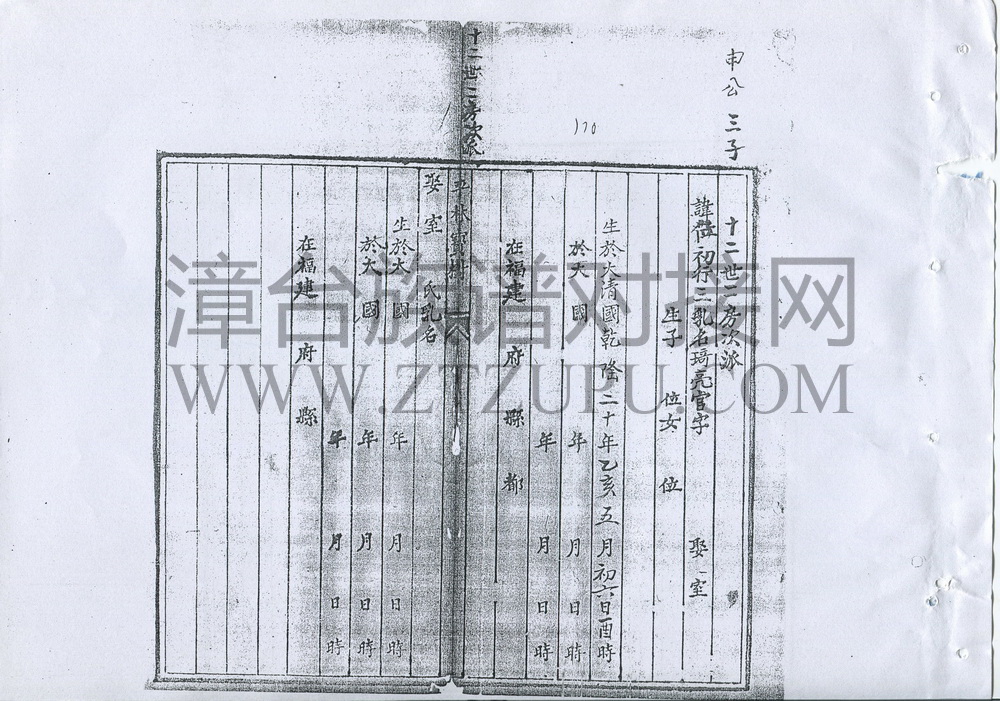 申公 三子
170
十二世二房次派
諱 初行三乳名琦亮官字 娶 室
生子 位女 位
生於大清國乾隆二十年乙亥五月初六日酉時
於大 國 年 月 日 時
年 月 日 時
在福建 府 縣 都
十二世二房次派
林寶樹
娶室 氏乳名
生於大 國 年 月 日 時
於大 國 年 月 日 時
年 月 日 時
在福建 府 縣
漳台族谱对接网
WWW.ZTZUPU.COM